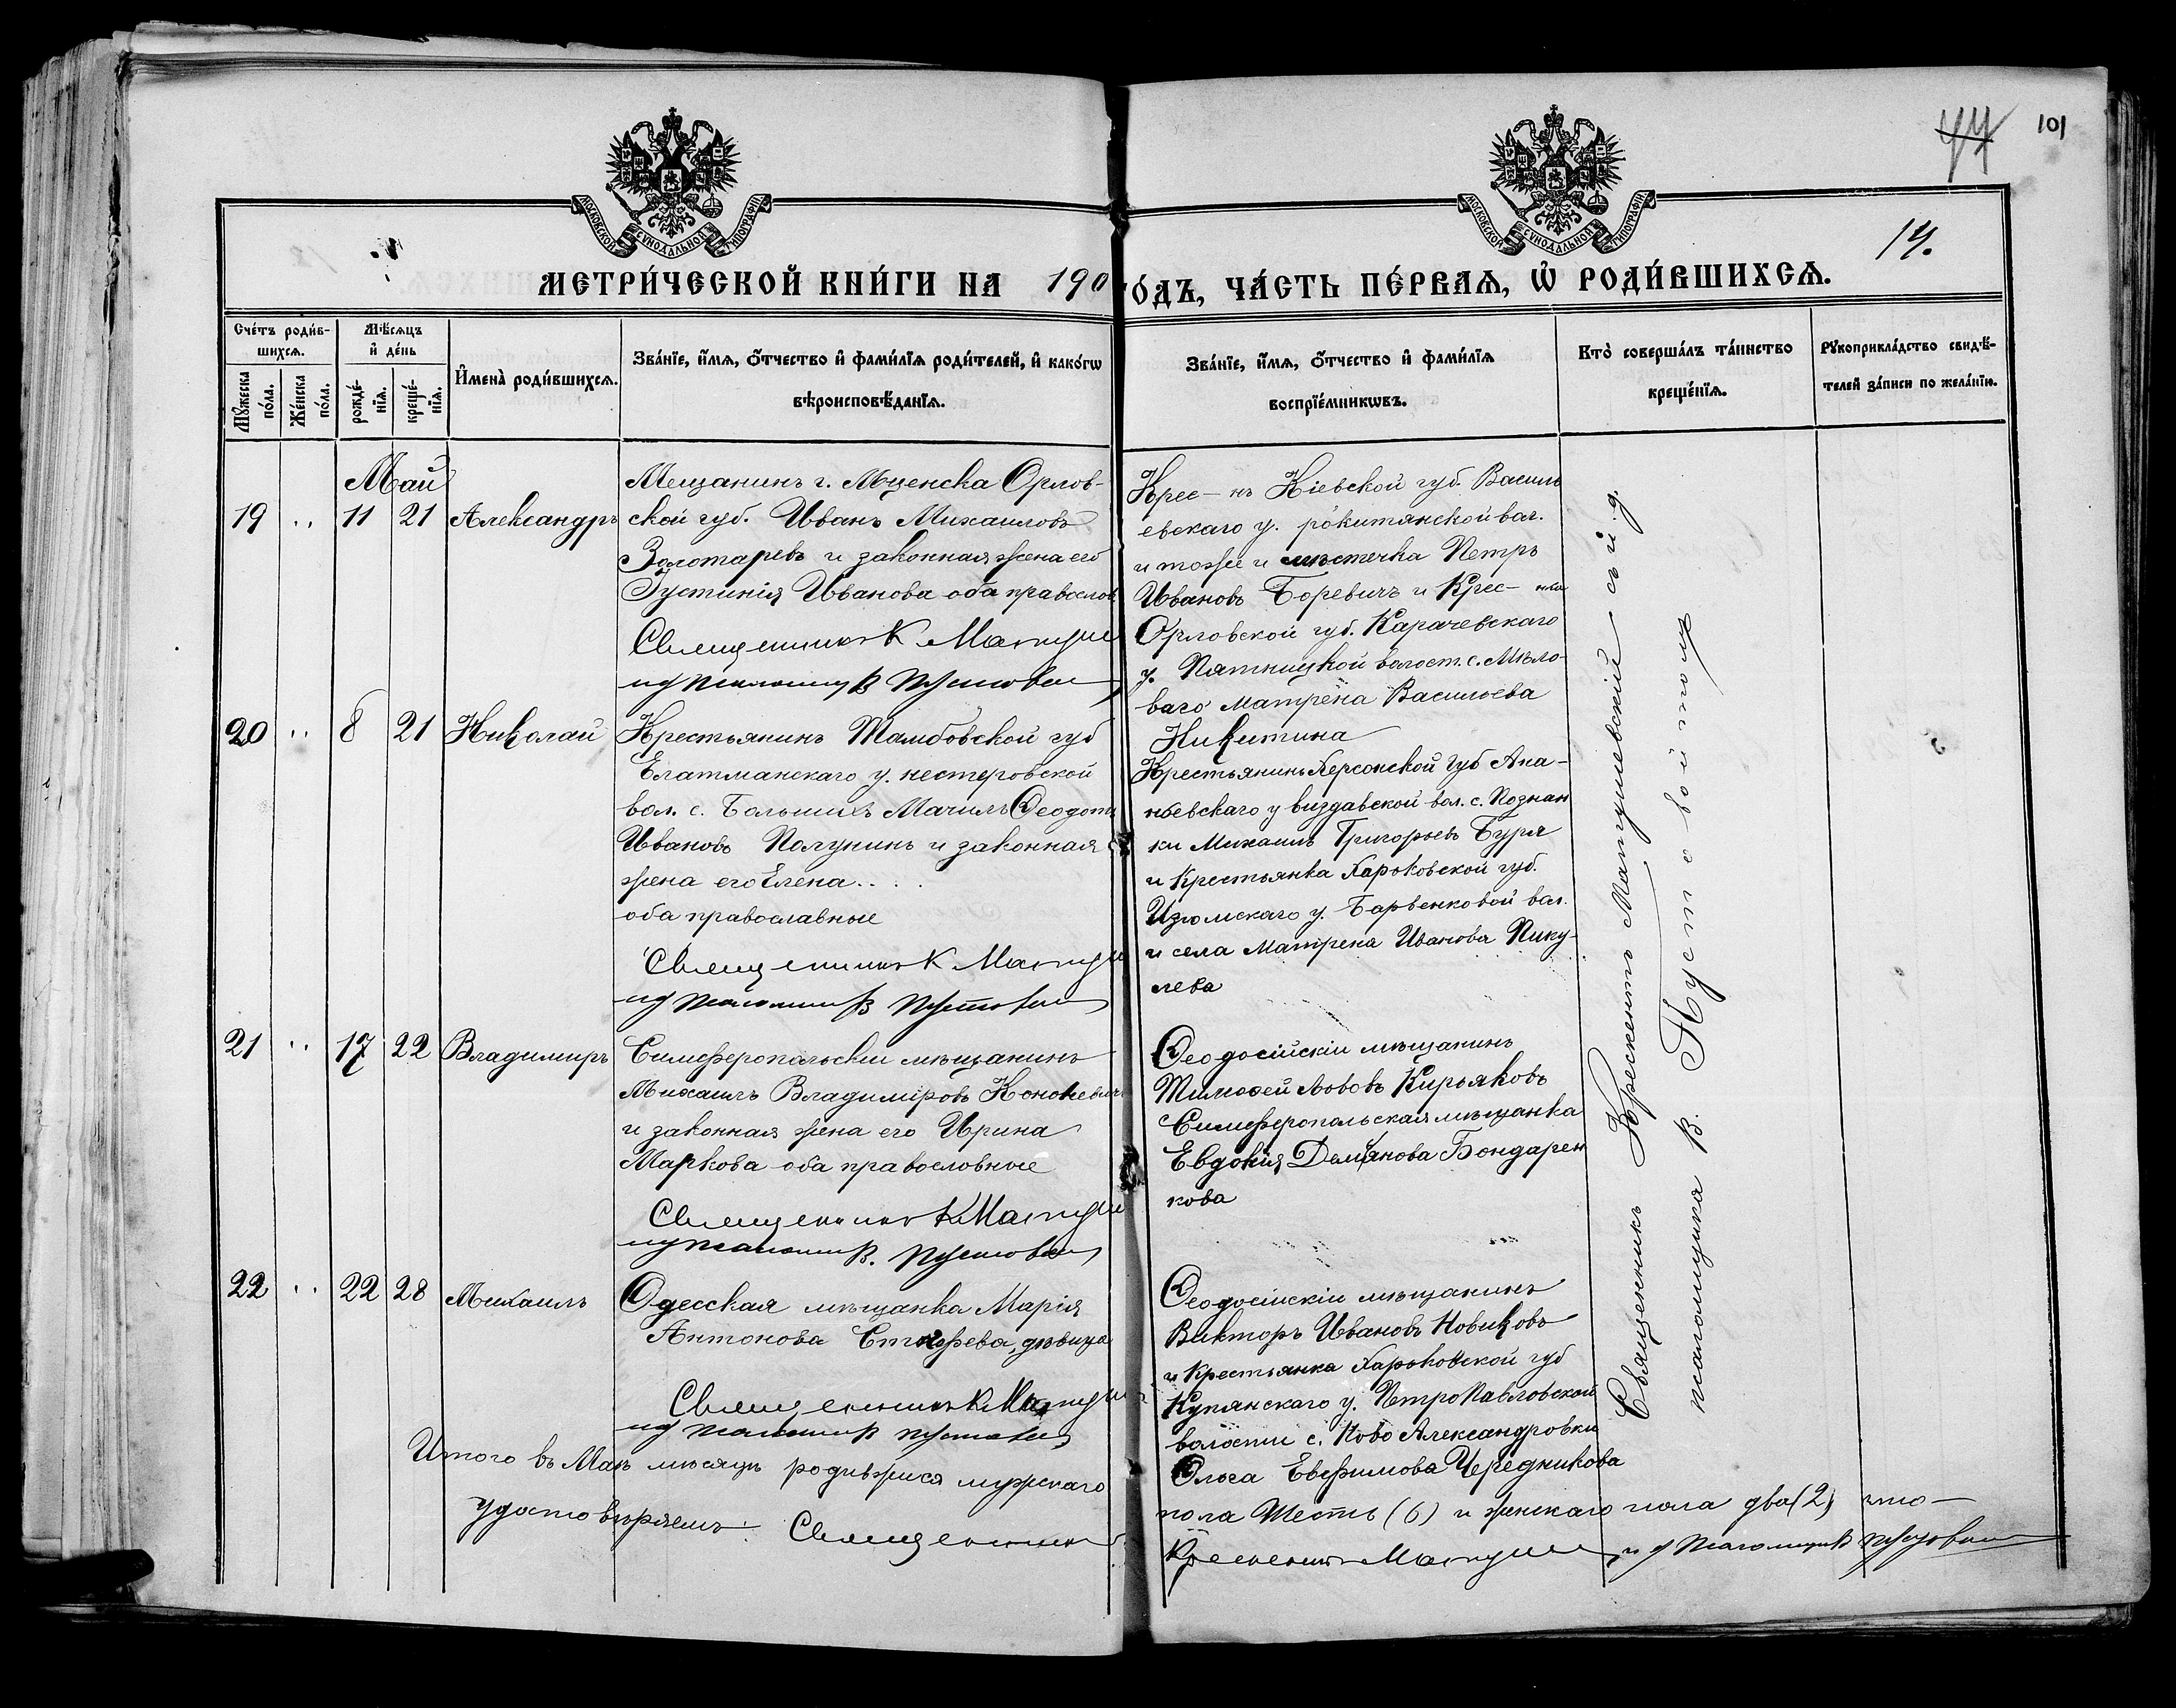 44 101
МОСКОВСКОЙ СѴНОДАЛЬНОЙ ТИПОГРАФІИ
МОСКОВСКОЙ СѴНОДАЛЬНОЙ ТИПОГРАФІИ
14.
МЕТРИ́ЧЕСКОЙ КНИ́ГИ НА 190
О́ДЪ, ЧА́СТЬ ПЕ́РВАѦ, Ѡ҆ РОДИ́ВШИХСѦ.
Сче́тъ роди́в-
шихсѧ.
Мꙋ́жеска по́ла.
Же́нска по́ла.
Мѣ́сѧцъ
и҆ де́нь
рожде́-
нїѧ.
креще́-
нїѧ.
И҆мена̀ роди́вшихсѧ.
Зва́нїе, и҆́мѧ, ѻ҆́тчество и҆ фами́лїѧ роди́телей, и҆ како́гѡ
вѣроисповѣ́данїѧ.
Зва́нїе, и҆́мѧ, ѻ҆́тчество и҆ фами́лїѧ
воспрїе́мникѡвъ.
Кто̀ соверша́лъ та́инство
креще́нїѧ.
Рꙋкоприкла́дство свидѣ́-
телей за́писи по жела́нїю.
Май
19 " 11 21 Александръ
Мещанинъ г. Мценска Орлов-
ской губ. Иванъ Михаиловъ
Золотаревъ и законная жена его
Іустинія Иванова оба православ
Священникъ К Мангуше
и д псаломщ В Пустовой
Крес-нъ Кіевской губ. Василь
евскаго у. рокитянской вол.
и тоже и мѣстечка Петръ
Ивановъ Боревичъ и Крес-нка
Орловской губ. Карачевскаго
у. Пятницкой волост. с. Мѣло-
ваго Матрёна Васильева
Никитина
20 " 8 21 Николай
Крестьянинъ Тамбовской губ
Елатманскаго у. нестеровской
вол. с. Большихъ Мачилъ Ѳеодотъ
Ивановъ Полунинъ и законная
жена его Елена . . . .
оба православные
Священникъ К Мангуше
и д псаломщ В Пустовой
Крестьянинъ Херсонской губ Ана-
ньевскаго у виздавской вол. с. Познан
ки Михаилъ Григорьевъ Буря
и Крестьянка Харьковской губ.
Изюмскаго у. Барвенковой вол.
и села Матрена Иванова Пику-
лева
21 " 17 22 Владимиръ
Симферопольскій мѣщанинъ
Михаилъ Владиміровъ Кононевичъ
и законная жена его Ирина
Маркова оба православные
Священникъ К Мангуше
и д псаломщ В. Пустовой
Ѳеодосійскій мѣщанинъ
Тимоѳей Львовъ Кирьяковъ
Симферопольская мѣщанка
Евдокія Демьянова Бондарен
кова
22 " 22 28 Михаилъ
Одесская мѣщанка Марія
Антонова дѣвица
Священникъ К Мангуше
и д псаломщ В Пустовой
Ѳеодосійскій мѣщанинъ
Викторъ Ивановъ Новиковъ
и Крестьянка Харьковской губ
Купянскаго у. Петропавловской
волости с. Ново Александровки
Ольга Евфимова Чередникова
Священникъ Крескентъ Мангушевскій и. д.
псаломщика В. Пустовойтовъ
Итого въ Маѣ мѣсяцѣ родившихся мужскаго
пола Шесть (6) и женскаго пола два (2) что-
удостовѣряемъ: Священникъ
Крескентъ Мангуше и д псаломщ В Пустовой